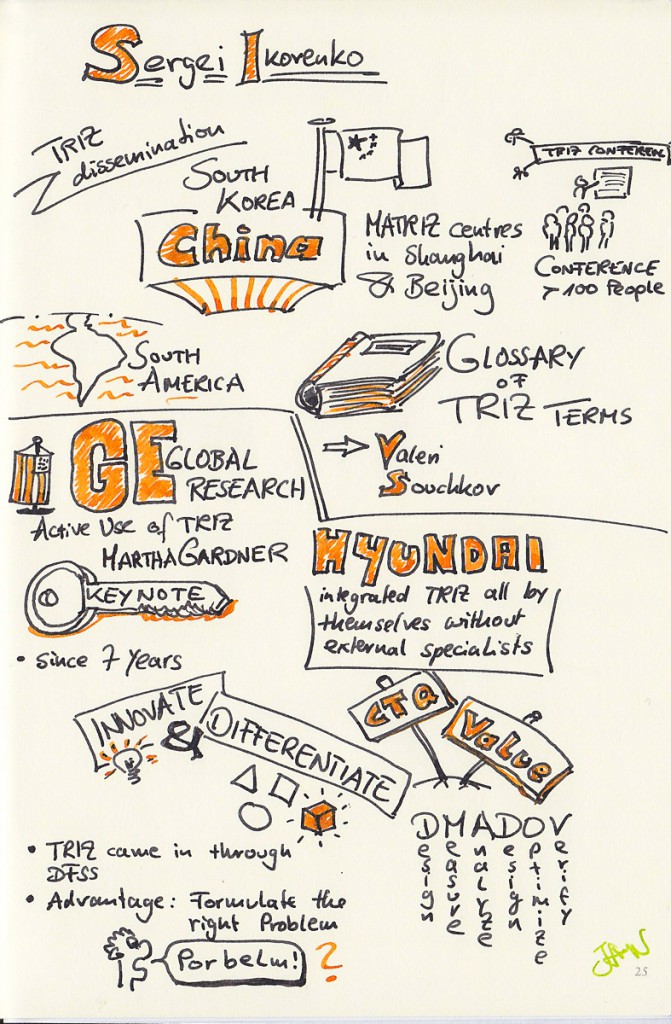 Sergei Ikorenko
TRIZ
dissemination
SOUTH
KOREA
China
MATRIZ centres
in Shanghai
& Beijing
TRIZ CONFERENC
CONFERENCE
> 100 People
SOUTH
AMERICA
GLOSSARY
OF
TRIZ TERMS
⇒ Valeri
Souchkov
GE GLOBAL
RESEARCH
Active Use of TRIZ
MARTHA GARDNER
KEYNOTE
• since 7 Years
HYUNDAI
integrated TRIZ all by
themselves without
external specialists
INNOVATE
&
DIFFERENTIATE
CTQ
Value
• TRIZ came in through
DFSS
• Advantage: Formulate the
right Problem
Porbelm! ?
DMADOV
Design
Measure
Analyze
Design
Optimize
Verify
25